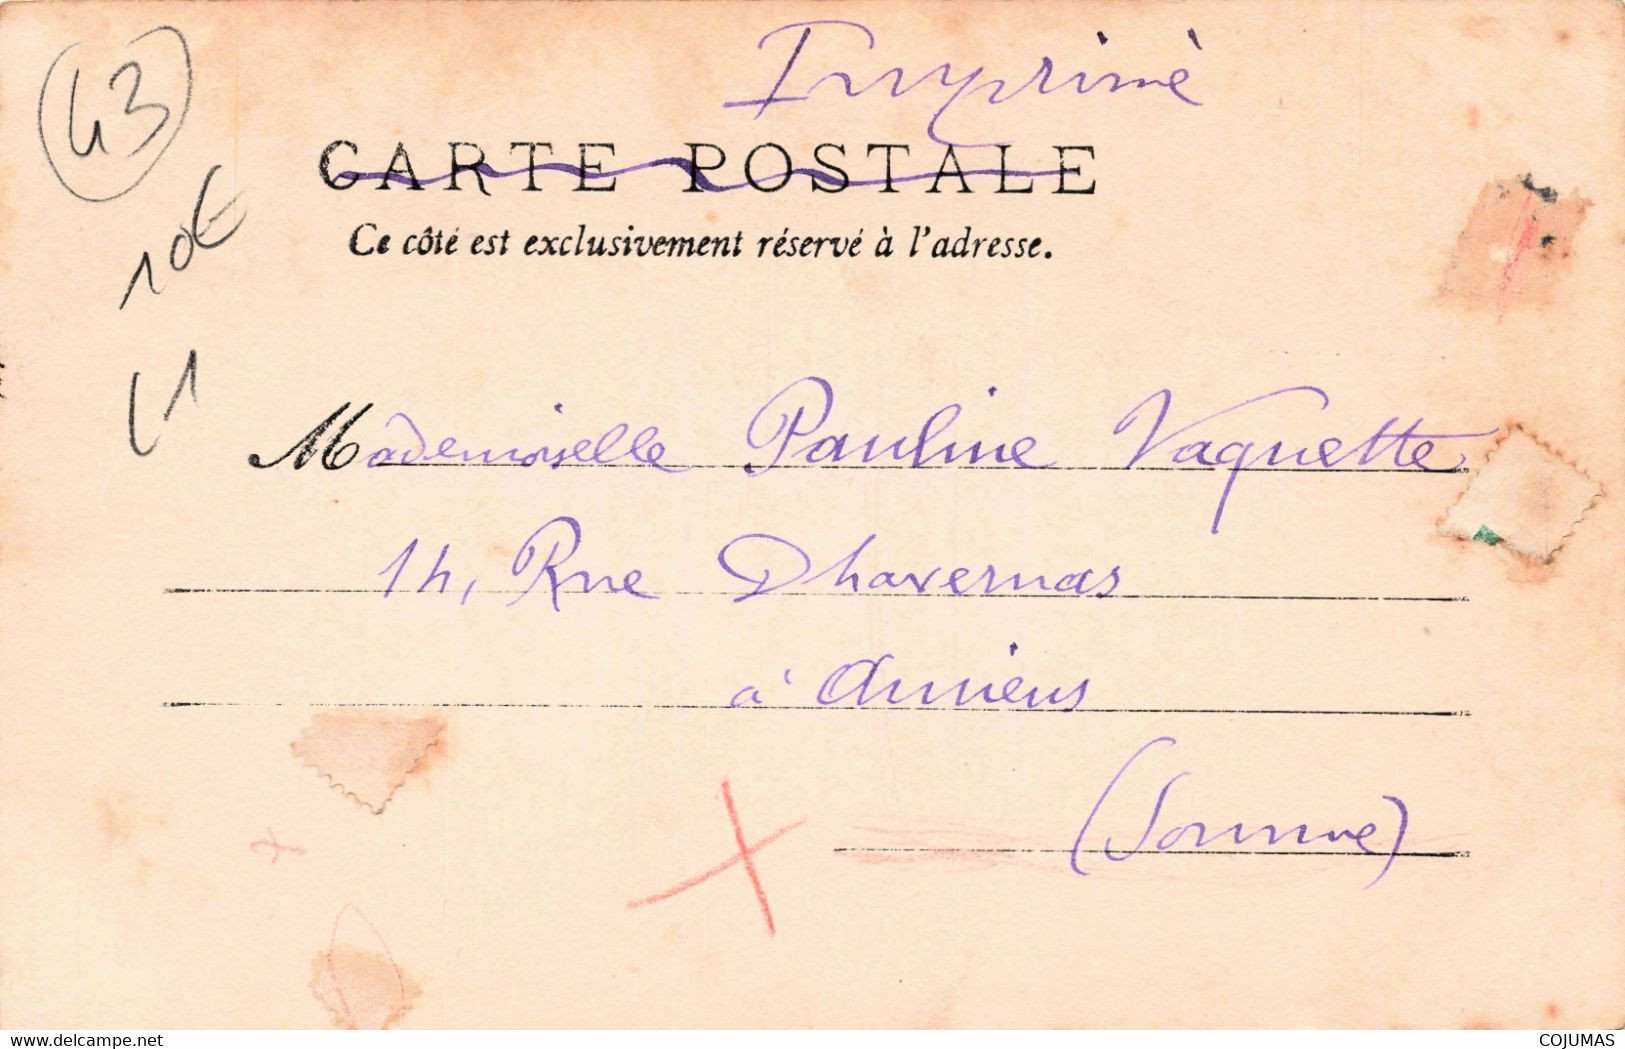 Imprimé
43
CARTE POSTALE
10€
Ce côté est exclusivement réservé à l'adresse.
L1
Mademoiselle Pauline Vaquette
14, Rue Dhavernas
à Amiens
(Somme)
www.delcampe.net
COJUMAS